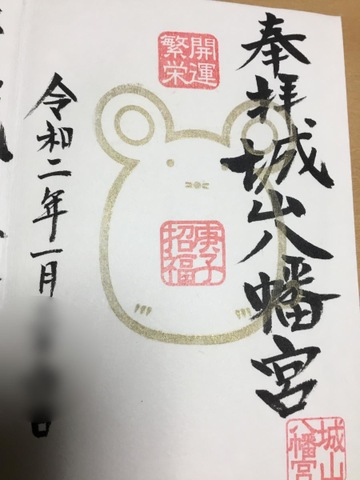 奉拝
城山八幡宮
開運
繁栄
庚子
招福
城山
八幡宮
令和二年一月
日